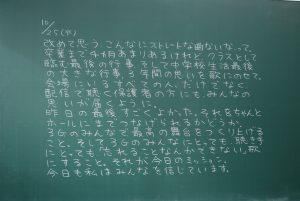 10
25(火)
改めて思う。こんなにストレートな曲ないなって。
卒業まで4か月あまりあるけれど、クラスとして
臨む最後の行事。そして中学校生活最後
の大きな行事。3年間の思いを歌にのせて。
会場にいるすべての人、だけでなく、
配信で聴く保護者の方にもみんなの
思いが届くように。
昨日の最後、すごくよかった。それをちゃんと
ホールにまでつなげられるかどうか。
3Gのみんなで最高の舞台をつくり上げる
こと。そして3Gのみんなにとっても、聴き手
にとっても「忘れることなんかできない」歌
にすること。それが今日のミッション。
今日も私はみんなを信じています。